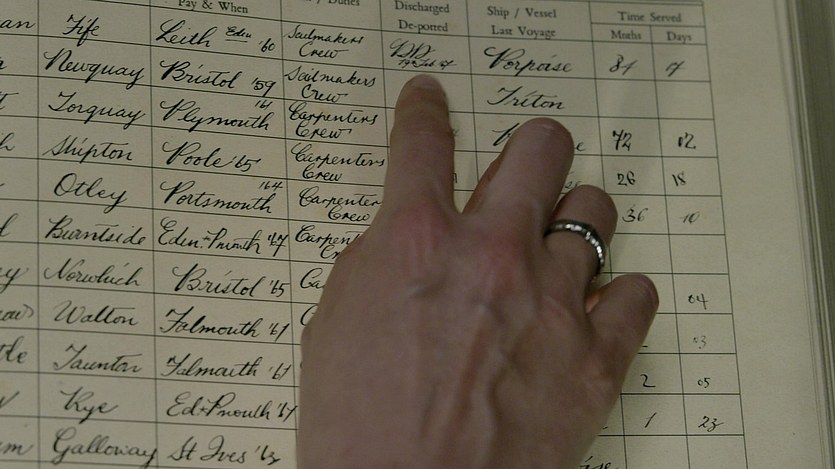 Pay & When
Discharged
De-ported
Ship / Vessel
Last Voyage
Time Served
Mnths Days
an Fife Leith Eden '60 Sailmakers Crew DD. Porpoise 81
Newquay Bristol '59 Sailmakers Crew Triton
Torquay Plymouth '61 Carpenters Crew 72 02
Shipton Poole '65 Carpenters Crew 26 18
Otley Portsmouth '64 Carpenter Crew 36 10
Burntside Eden-Pmouth '67 Carpen
Norwhich Bristol '65 04
Walton Falmouth '61 03
Taunton Falmouth '61 2 05
Rye Ed-Pmouth '61 1 23
Galloway St Ives '63